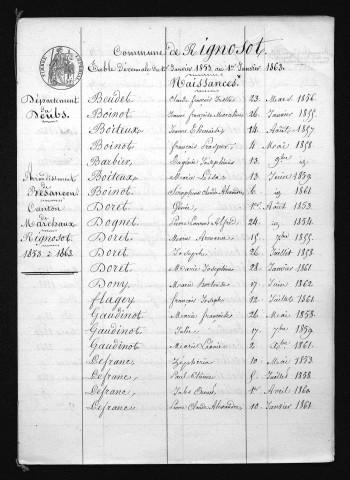 Commune de Rignosot.
Table Décennale du 1er Janvier 1853 au 1er Janvier 1863.
Naissances.
Département
du
Doubs.
Arrondissement
de
Besançon
Canton
de
Marchaux
Rignosot
1853 à 1863
Boudet Claude françois 23. Mars 1856.
Boinot Jeanne françoise 26. Janvier 1855.
Boiteux Jeanne 14. Août 1857.
Boinot françois Prosper 4. Mai 1858
Barbier Joséphine 13. 9bre id
Boiteux Marie 13. Juin 1859
Boinot Claude 6. id 1861
Boret 1er Août 1853.
Bognet Pierre Alfred 24. id 1854.
Boret Marie 15. 7bre 1855.
Boret Joseph 26. Juillet 1858
Boret Marie Joséphine 28. Janvier 1861
Bony Marie 17. Juin 1862
flagey françois Joseph 12. Juillet 1861
Gaudinot Marie françoise 26. Mai 1858.
Gaudinot Jules 17. 7bre 1859.
Gaudinot Marie 2. 1861.
Lefranc 10. Mai 1853.
Lefranc Paul 5. Juillet 1858.
Lefranc Jules 1er Avril 1860
Lefranc Pierre Claude Alexandre 10. Janvier 1861